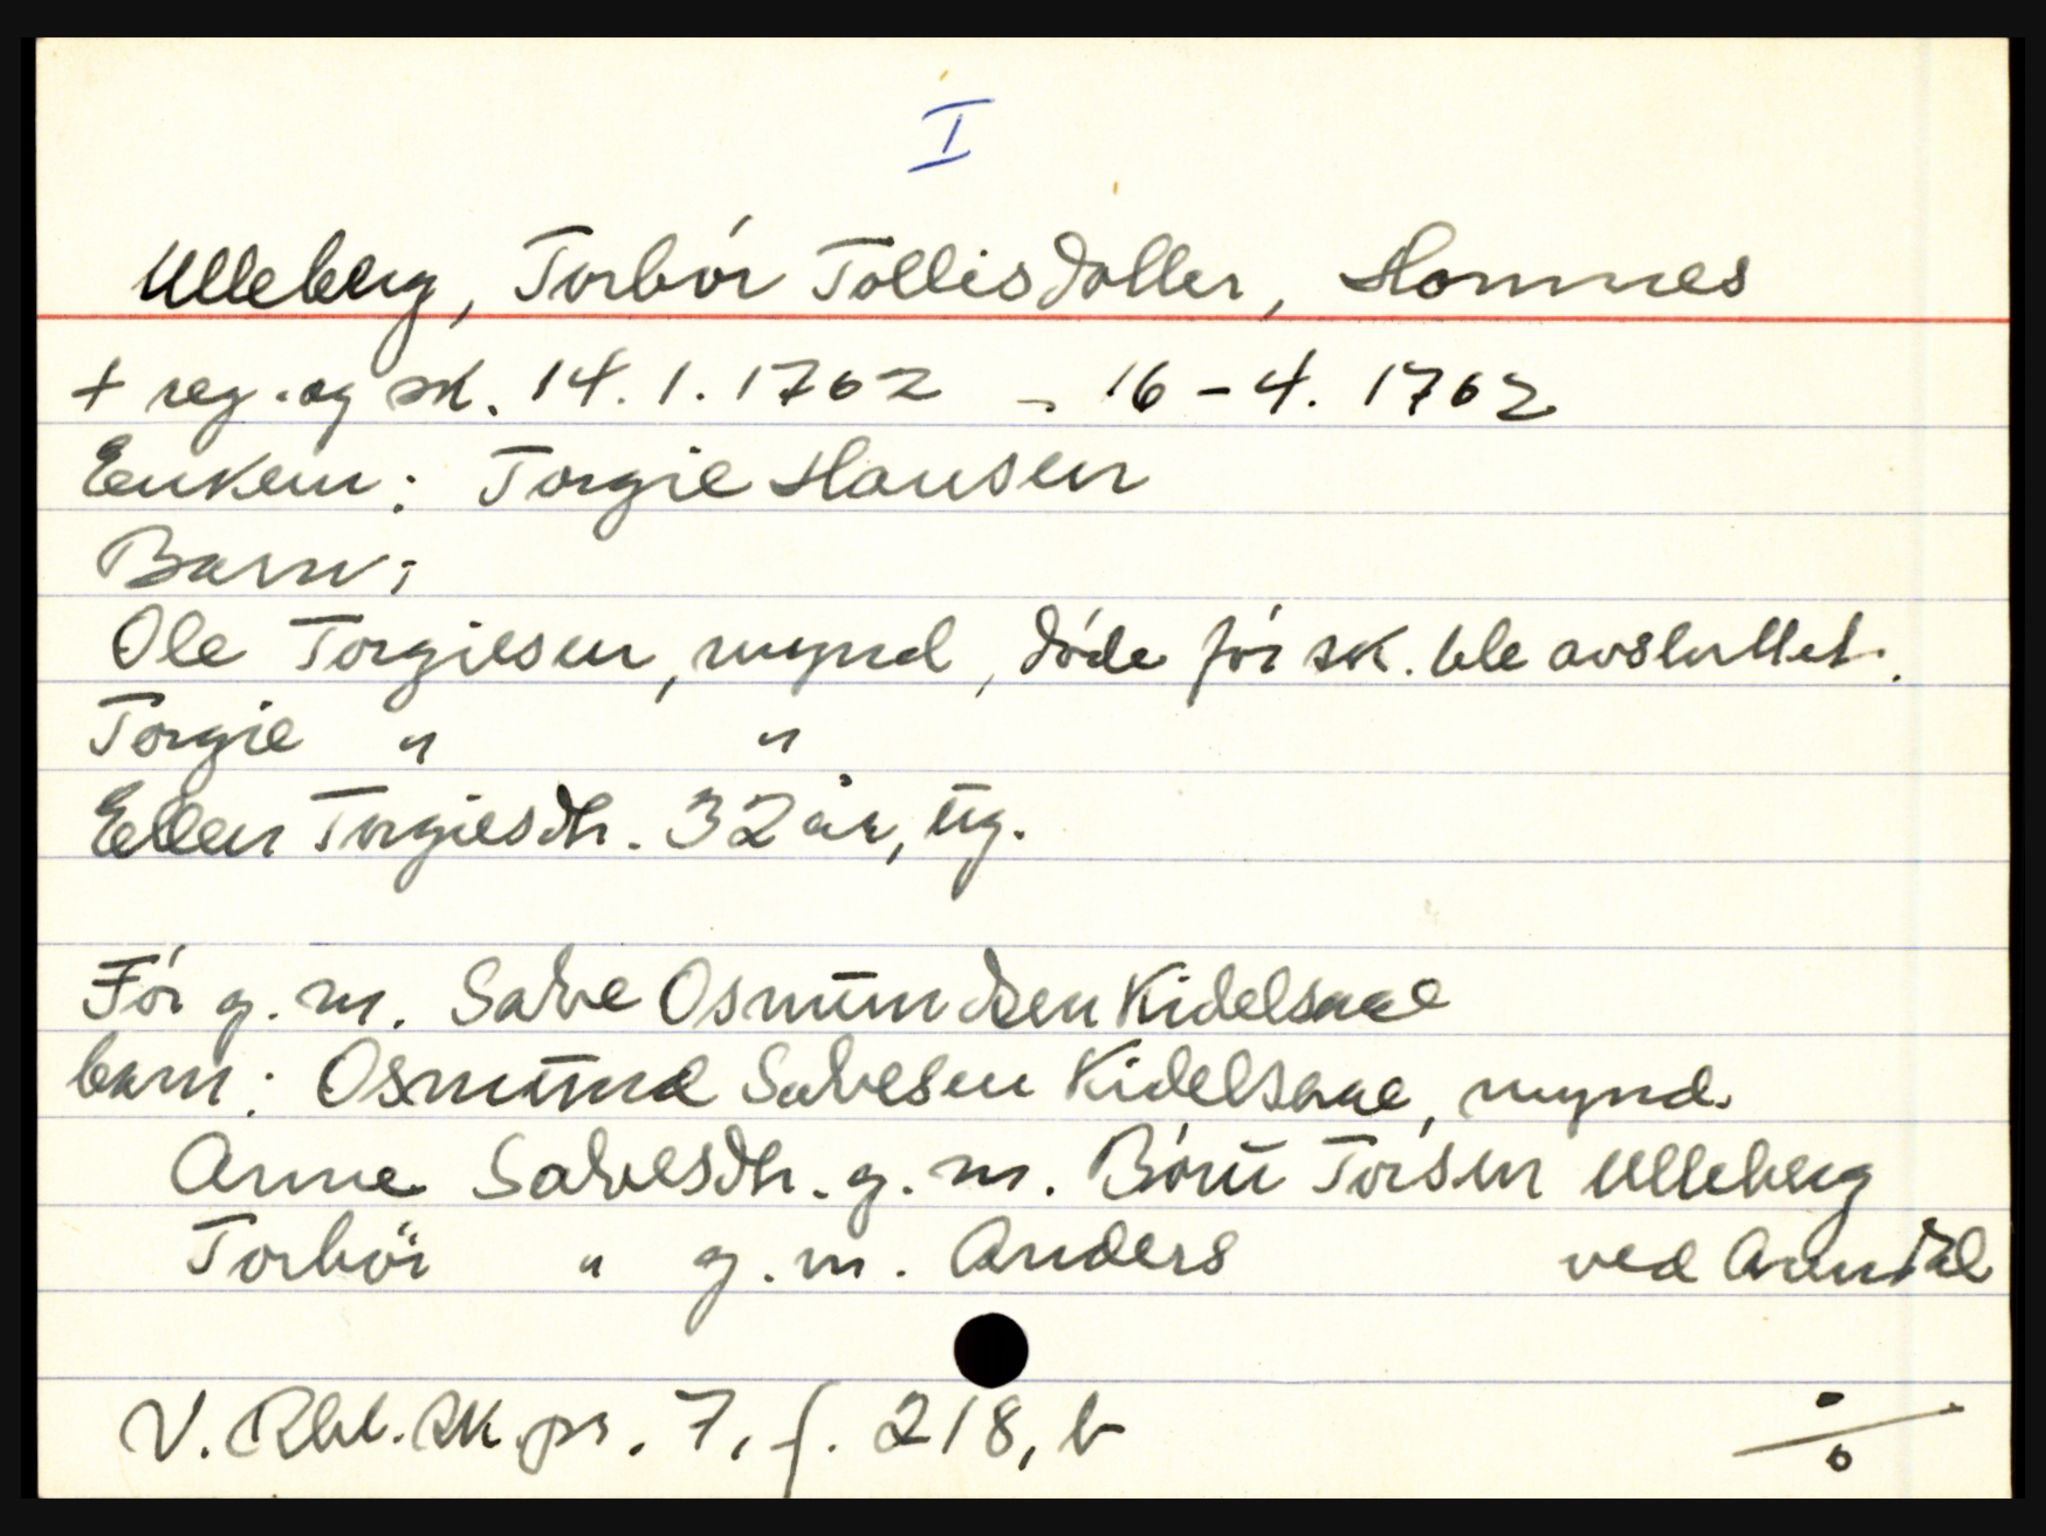 I
Ulleberg, Torbór Tollisdotter, Homnes
+ reg. og sk. 14. 1. 1762 - 16 - 4. 1762
Enkem: Torgie Hansen
Barn:
Ole Torgiesen, mynd, døde før sk. ble avsluttet.
Torgie " "
Ellen Torgiesdtr. 32 år, ug.
Før g. m. Salve Osmundsen Kidelsaae
barn: Osmund Salvesen Kidelsaae, mynd.
Anne Salvesdtr. g. m. Börü Torsen Ulleberg
Torbör " g. m. Anders ved Arendal
V. Rbl. sk. pr. 7, f. 218, b